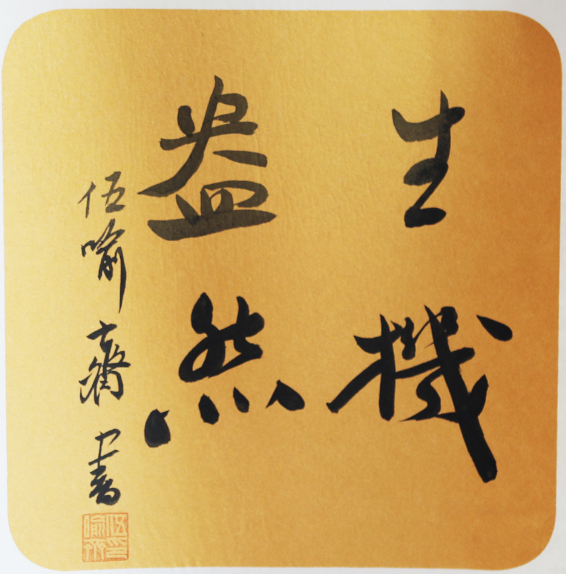 生機
盎然
伍喻齋書